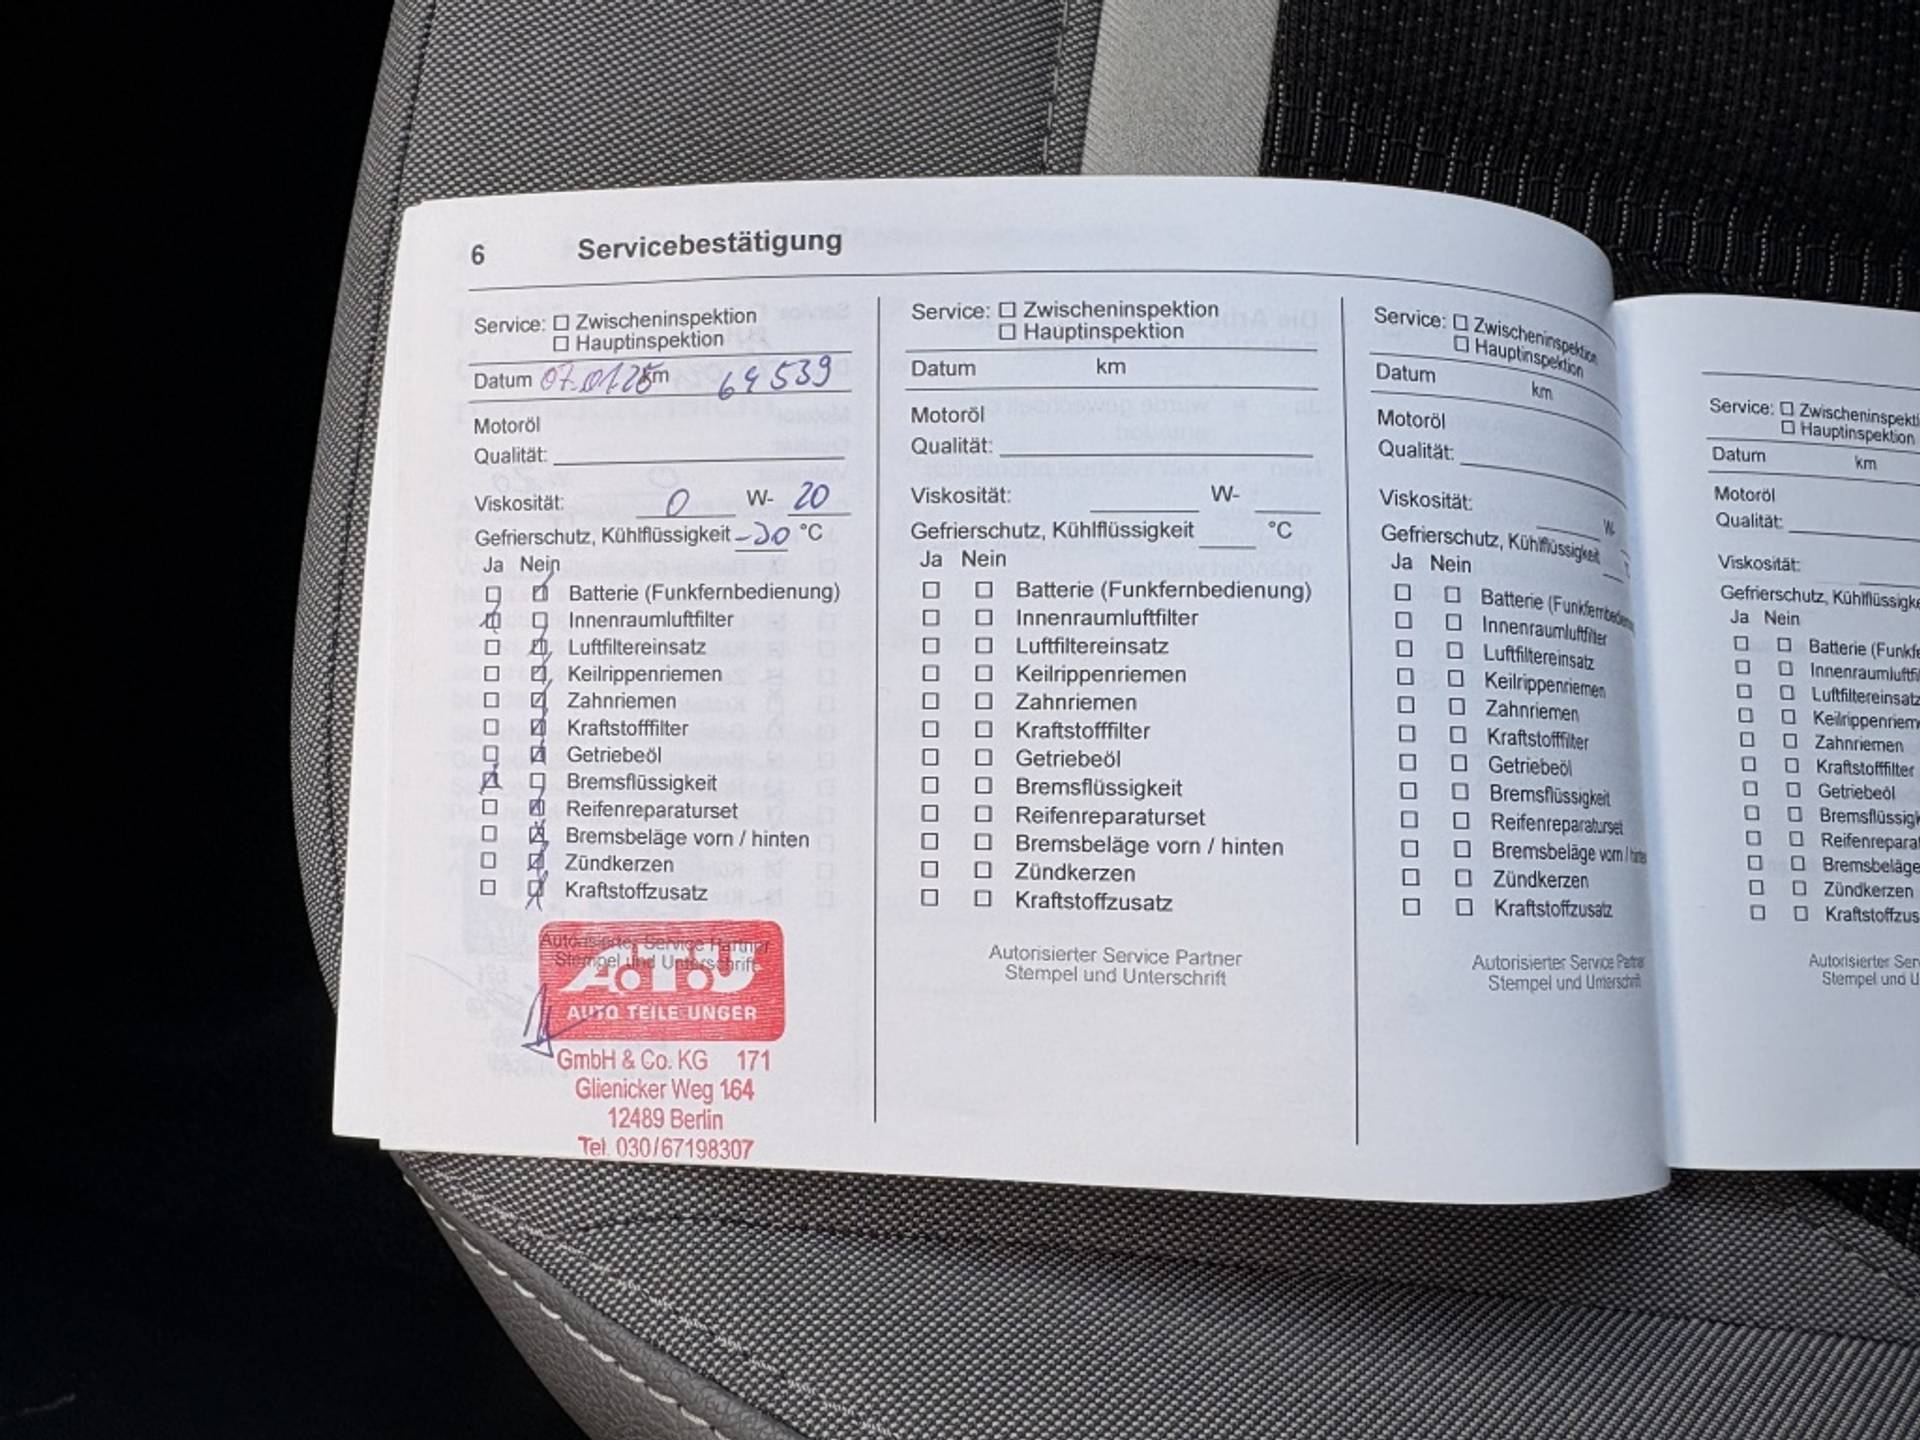 6 Servicebestätigung
Service: ☐ Zwischeninspektion
☐ Hauptinspektion
Datum 07.01.25 km 64539
Motoröl
Qualität:
Viskosität: 0 W- 20
Gefrierschutz, Kühlflüssigkeit -20 °C
Ja Nein
Batterie (Funkfernbedienung)
Innenraumluftfilter
Luftfiltereinsatz
Keilrippenriemen
Zahnriemen
Kraftstofffilter
Getriebeöl
Bremsflüssigkeit
Reifenreparaturset
Bremsbeläge vorn / hinten
Zündkerzen
Kraftstoffzusatz
Autorisierter Service Partner
Stempel und Unterschrift
A.T.U
AUTO TEILE UNGER
GmbH & Co. KG 171
Glienicker Weg 164
12489 Berlin
Tel. 030/67198307
Service: ☐ Zwischeninspektion
☐ Hauptinspektion
Datum km
Motoröl
Qualität:
Viskosität: W-
Gefrierschutz, Kühlflüssigkeit °C
Ja Nein
Batterie (Funkfernbedienung)
Innenraumluftfilter
Luftfiltereinsatz
Keilrippenriemen
Zahnriemen
Kraftstofffilter
Getriebeöl
Bremsflüssigkeit
Reifenreparaturset
Bremsbeläge vorn / hinten
Zündkerzen
Kraftstoffzusatz
Autorisierter Service Partner
Stempel und Unterschrift
Service: ☐ Zwischeninspektion
☐ Hauptinspektion
Datum km
Motoröl
Qualität:
Viskosität: W-
Gefrierschutz, Kühlflüssigkeit
Ja Nein
Batterie (Funkfernbedie
Innenraumluftfilter
Luftfiltereinsatz
Keilrippenriemen
Zahnriemen
Kraftstofffilter
Getriebeöl
Bremsflüssigkeit
Reifenreparaturset
Bremsbeläge vorn / hinten
Zündkerzen
Kraftstoffzusatz
Autorisierter Service Partner
Stempel und Unterschrift
Service: ☐ Zwischeninspekti
☐ Hauptinspektion
Datum km
Motoröl
Qualität:
Viskosität:
Gefrierschutz, Kühlflüssigke
Ja Nein
Batterie (Funkfe
Innenraumluftfi
Luftfiltereinsatz
Keilrippenriem
Zahnriemen
Kraftstofffilter
Getriebeöl
Bremsflüssigk
Reifenrepara
Bremsbeläge
Zündkerzen
Kraftstoffzus
Autorisierter Ser
Stempel und U